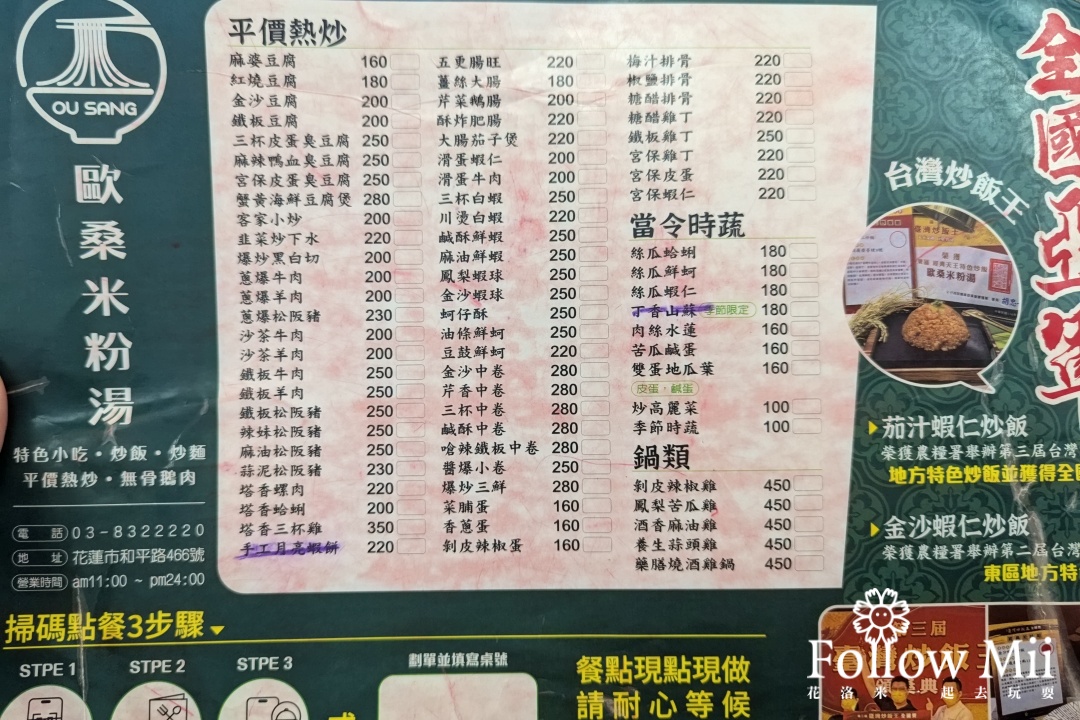 OU SANG
歐桑米粉湯
特色小吃・炒飯・炒麵
平價熱炒・無骨鵝肉
電話 03-8322220
地址 花蓮市和平路466號
營業時間 am11:00 ~ pm24:00
平價熱炒
麻婆豆腐 160
紅燒豆腐 180
金沙豆腐 200
鐵板豆腐 200
三杯皮蛋臭豆腐 250
麻辣鴨血臭豆腐 250
宮保皮蛋臭豆腐 250
蟹黃海鮮豆腐煲 280
客家小炒 200
韭菜炒下水 220
爆炒黑白切 200
蔥爆牛肉 200
蔥爆羊肉 200
蔥爆松阪豬 230
沙茶牛肉 200
沙茶羊肉 200
鐵板牛肉 250
鐵板羊肉 250
鐵板松阪豬 250
辣妹松阪豬 250
麻油松阪豬 250
蒜泥松阪豬 230
塔香螺肉 220
塔香蛤蜊 200
塔香三杯雞 350
手工月亮蝦餅 220
五更腸旺 220
薑絲大腸 180
芹菜鵝腸 200
酥炸肥腸 220
大腸茄子煲 220
滑蛋蝦仁 200
滑蛋牛肉 200
三杯白蝦 250
川燙白蝦 220
鹹酥鮮蝦 250
麻油鮮蝦 250
鳳梨蝦球 250
金沙蝦球 250
蚵仔酥 250
油條鮮蚵 250
豆鼓鮮蚵 220
金沙中卷 280
芹香中卷 280
三杯中卷 280
鹹酥中卷 280
嗆辣鐵板中卷 280
醬爆小卷 250
爆炒三鮮 280
菜脯蛋 160
香蔥蛋 160
剝皮辣椒蛋 160
梅汁排骨 220
椒鹽排骨 220
糖醋排骨 220
糖醋雞丁 220
鐵板雞丁 250
宮保雞丁 220
宮保皮蛋 220
宮保蝦仁 220
當令時蔬
絲瓜蛤蜊 180
絲瓜鮮蚵 180
絲瓜蝦仁 180
丁香山蘇 季節限定 180
肉絲水蓮 160
苦瓜鹹蛋 160
雙蛋地瓜葉 160
皮蛋・鹹蛋
炒高麗菜 100
季節時蔬 100
鍋類
剝皮辣椒雞 450
鳳梨苦瓜雞 450
酒香麻油雞 450
養生蒜頭雞 450
藥膳燒酒雞鍋 450
全國亞
台灣炒飯王
歐桑米粉湯
茄汁蝦仁炒飯
榮獲農糧署舉辦第三屆台灣
地方特色炒飯並獲得全
金沙蝦仁炒飯
榮獲農糧署舉辦第二屆台灣
東區地方特
掃碼點餐3步驟
STPE 1
STPE 2
STPE 3
劃單並填寫桌號
餐點現點現做
請耐心等候
三屆
炒飯
Follow Mii
花洛米一起去玩耍